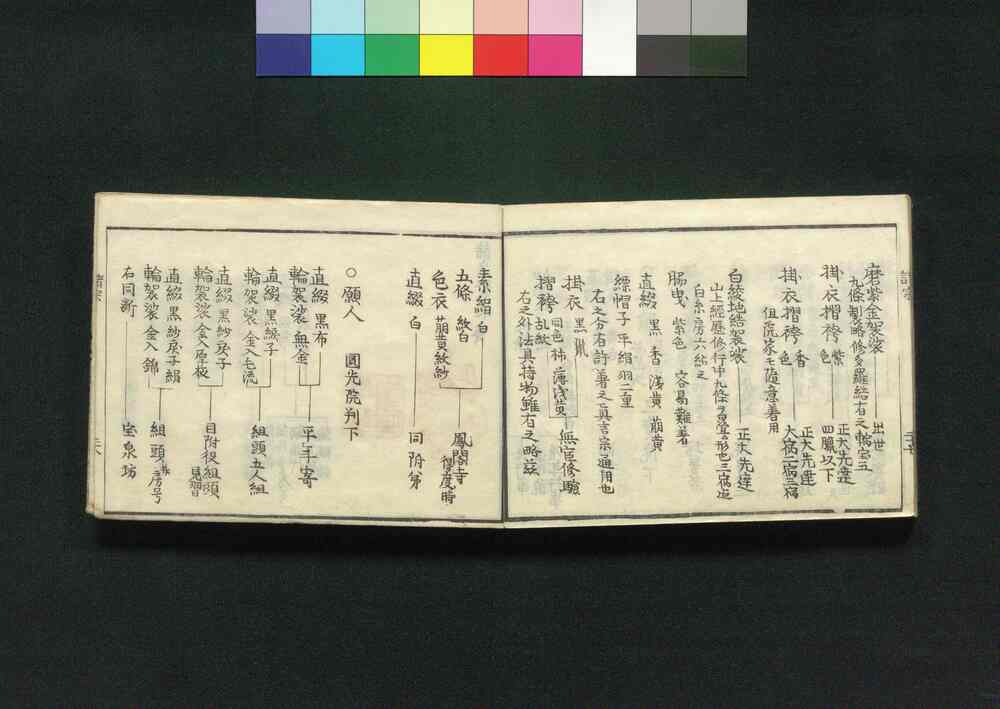 磨紫金袈裟 出世
九條製略修多羅結十右之幅定五
掛衣摺袴 紫色 正大先達 四臈以下
掛衣摺袴 香色 正大先達 大宿二宿三宿
但院家モ隨意着用
白綾地結袈裟 正大先達
山上經歷修行中九條ヲ疊
白糸房六結之
腸曳 紫色 容易難著
直綴 黒 香 浅黄 萠黄
縹帽子 平絹羽二重
右之分右許著之真言宗通用也
掛衣 黒
摺袴 同色 柿 薄浅黄 無官修驗
乱紋
右之外法具持物雖有之略茲
素絹 白
五條 紋白
色衣 萠黄紋紗 鳳閣寺 得度時
直綴 白 同 附弟
○願人 圓光院判下
直綴 黒布
輪袈裟 無金 平年寄
直綴 黒綟子
輪袈裟 金入毛流 組頭五人組
直綴 黒紗綟子
輪袈裟 金入厚板 目附役組頭見習
直綴 黒紗綟子絹
輪袈裟 金入錦 組頭 房号
右同断 宝泉坊
諸宗
諸宗